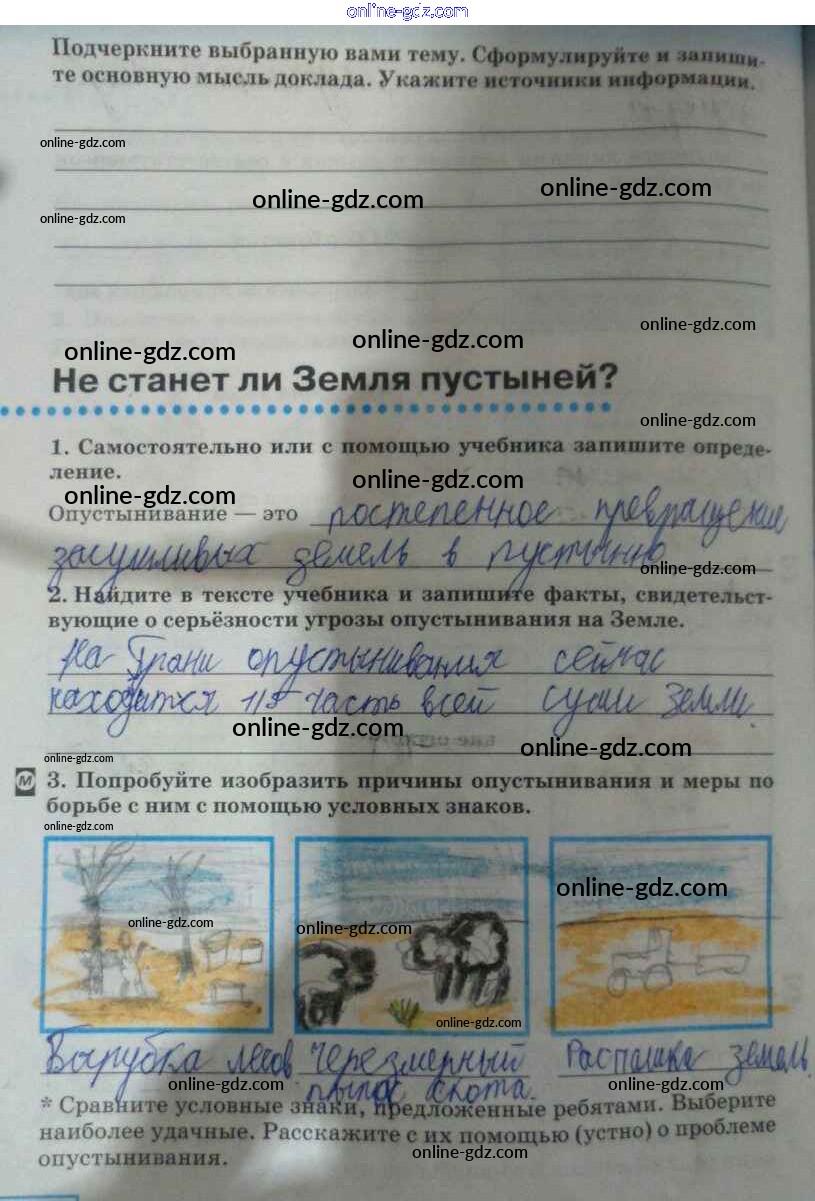 online-gdz.com
Подчеркните выбранную вами тему. Сформулируйте и запиши-
те основную мысль доклада. Укажите источники информации.
online-gdz.com
online-gdz.com
online-gdz.com
online-gdz.com
online-gdz.com
online-gdz.com
online-gdz.com
Не станет ли Земля пустыней?
online-gdz.com
1. Самостоятельно или с помощью учебника запишите опреде-
ление.
online-gdz.com
online-gdz.com
Опустынивание — это постепенное превращение
засушливых земель в пустыню
online-gdz.com
2. Найдите в тексте учебника и запишите факты, свидетельст-
вующие о серьёзности угрозы опустынивания на Земле.
На грани опустынивания сейчас
находится 1/5 часть всей суши Земли.
online-gdz.com
online-gdz.com
online-gdz.com
М 3. Попробуйте изобразить причины опустынивания и меры по
борьбе с ним с помощью условных знаков.
online-gdz.com
online-gdz.com
online-gdz.com
online-gdz.com
online-gdz.com
Вырубка лесов Черезмерный Распашка земель.
выпас скота.
online-gdz.com
online-gdz.com
online-gdz.com
* Сравните условные знаки, предложенные ребятами. Выберите
наиболее удачные. Расскажите с их помощью (устно) о проблеме
опустынивания.
online-gdz.com